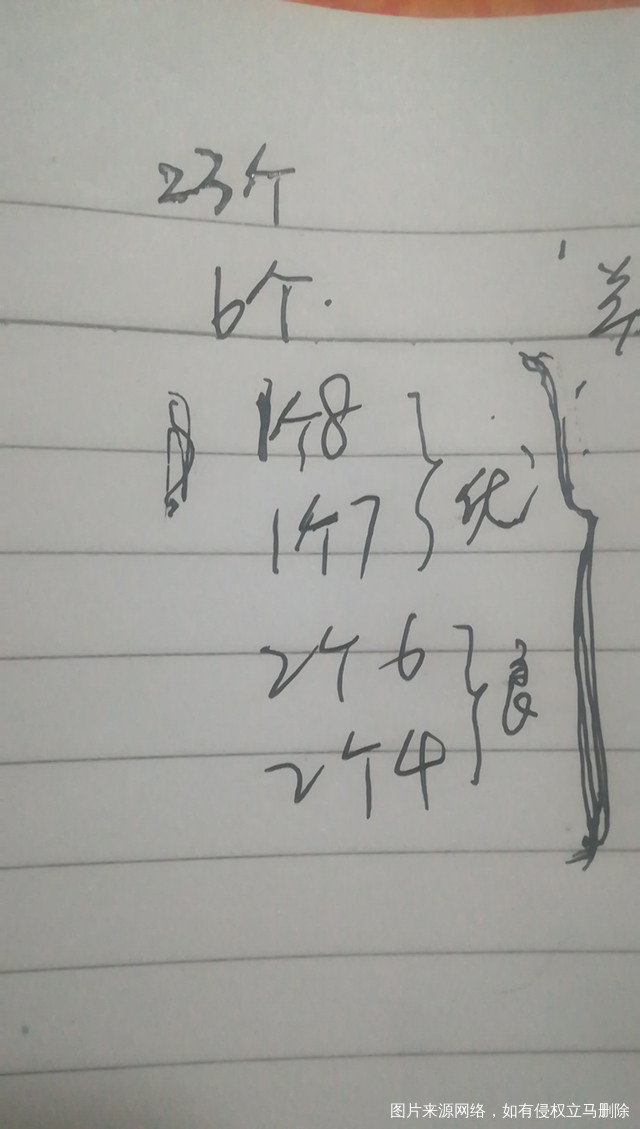 23个
6个.
1个8
1个7
优
2个6
2个4
良
图片来源网络，如有侵权立马删除